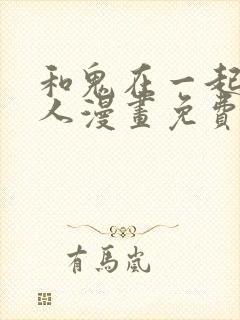 和鬼在一起
人漫畫免費
有馬嵐